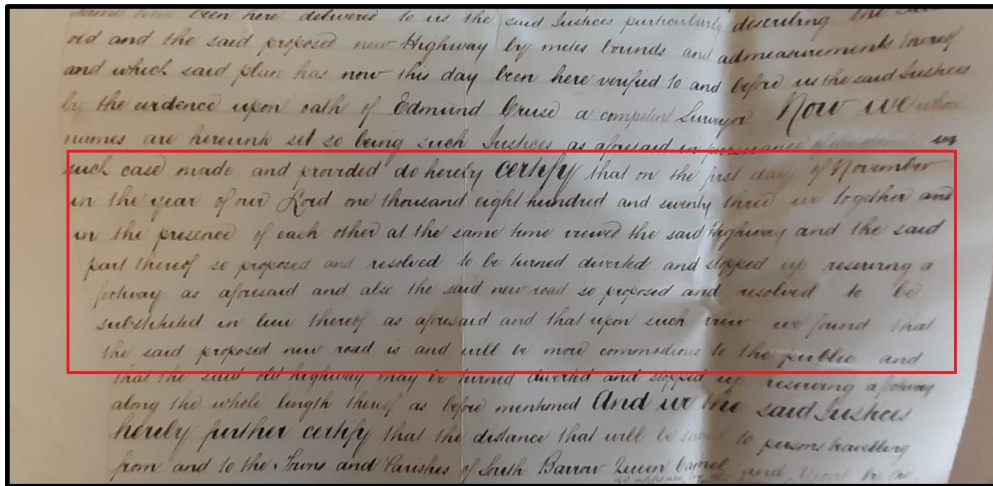 same time been here delivered to us the said Justices particularly describing the said
old and the said proposed new Highway by metes bounds and admeasurements thereof
and which said plan has now this day been here verified to and before us the said Justices
by the evidence upon oath of Edmund Cruse a competent Surveyor Now we whose
names are hereunto set so being such Justices as aforesaid in pursuance of the statute in
such case made and provided do hereby certify that on the first day of November
in the year of our Lord one thousand eight hundred and seventy three we together and
in the presence of each other at the same time viewed the said Highway and the said
part thereof so proposed and resolved to be turned diverted and stopped up reserving a
footway as aforesaid and also the said new road so proposed and resolved to be
substituted in lieu thereof as aforesaid and that upon such view we found that
the said proposed new road is and will be more commodious to the public and
that the said old highway may be turned diverted and stopped up reserving a footway
along the whole length thereof as before mentioned And we the said Justices
hereby further certify that the distance that will be saved to persons travelling
from and to the Towns and Parishes of South Barrow Queen Camel and